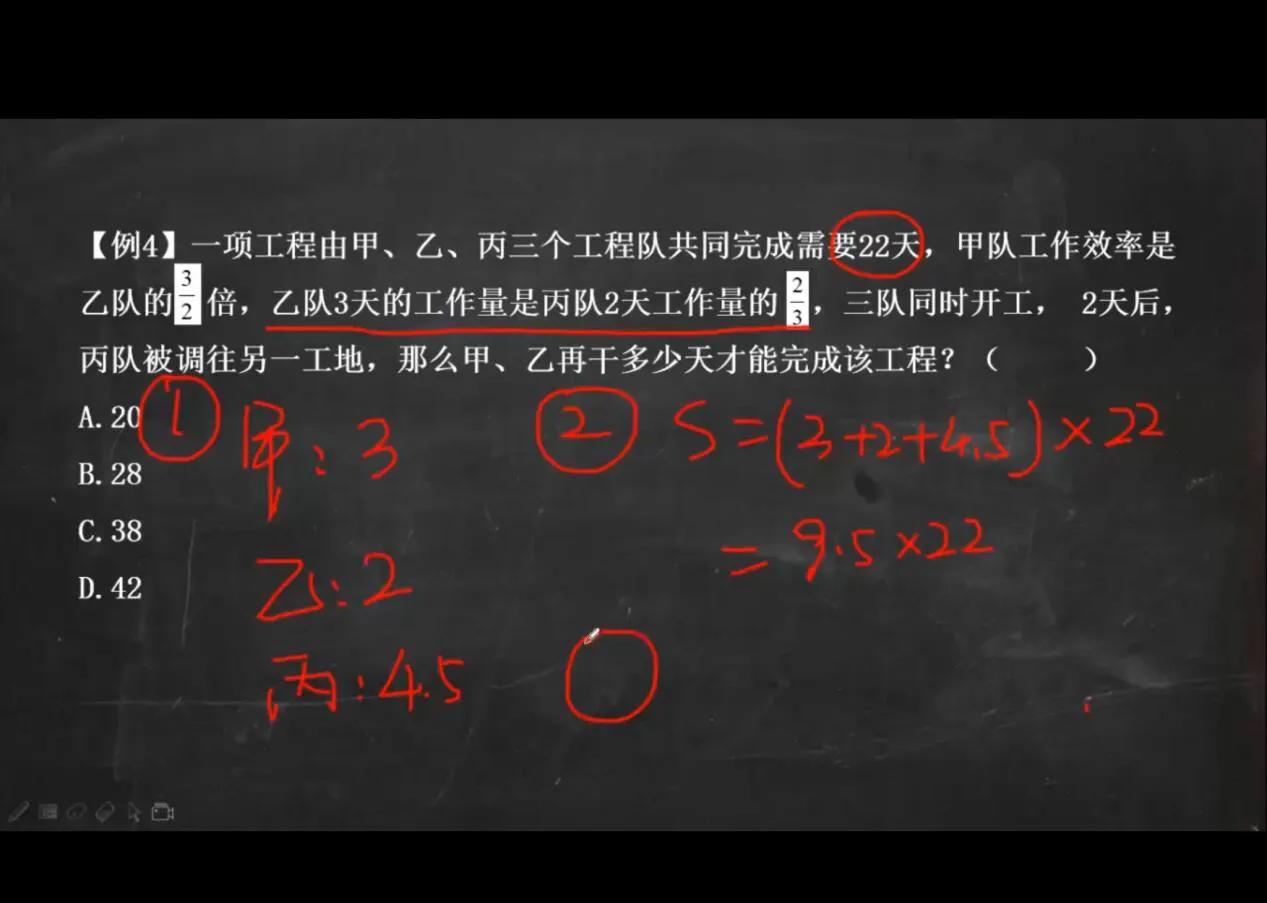 【例4】一项工程由甲、乙、丙三个工程队共同完成需要22天，甲队工作效率是
乙队的3/2倍，乙队3天的工作量是丙队2天工作量的2/3，三队同时开工， 2天后，
丙队被调往另一工地，那么甲、乙再干多少天才能完成该工程？（ ）
A. 20
B. 28
C. 38
D. 42
① 甲：3
乙：2
丙：4.5
② S=(3+2+4.5)×22
=9.5×22